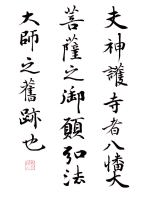 夫神護寺者八幡大
菩薩之御願弘法
大師之舊跡也